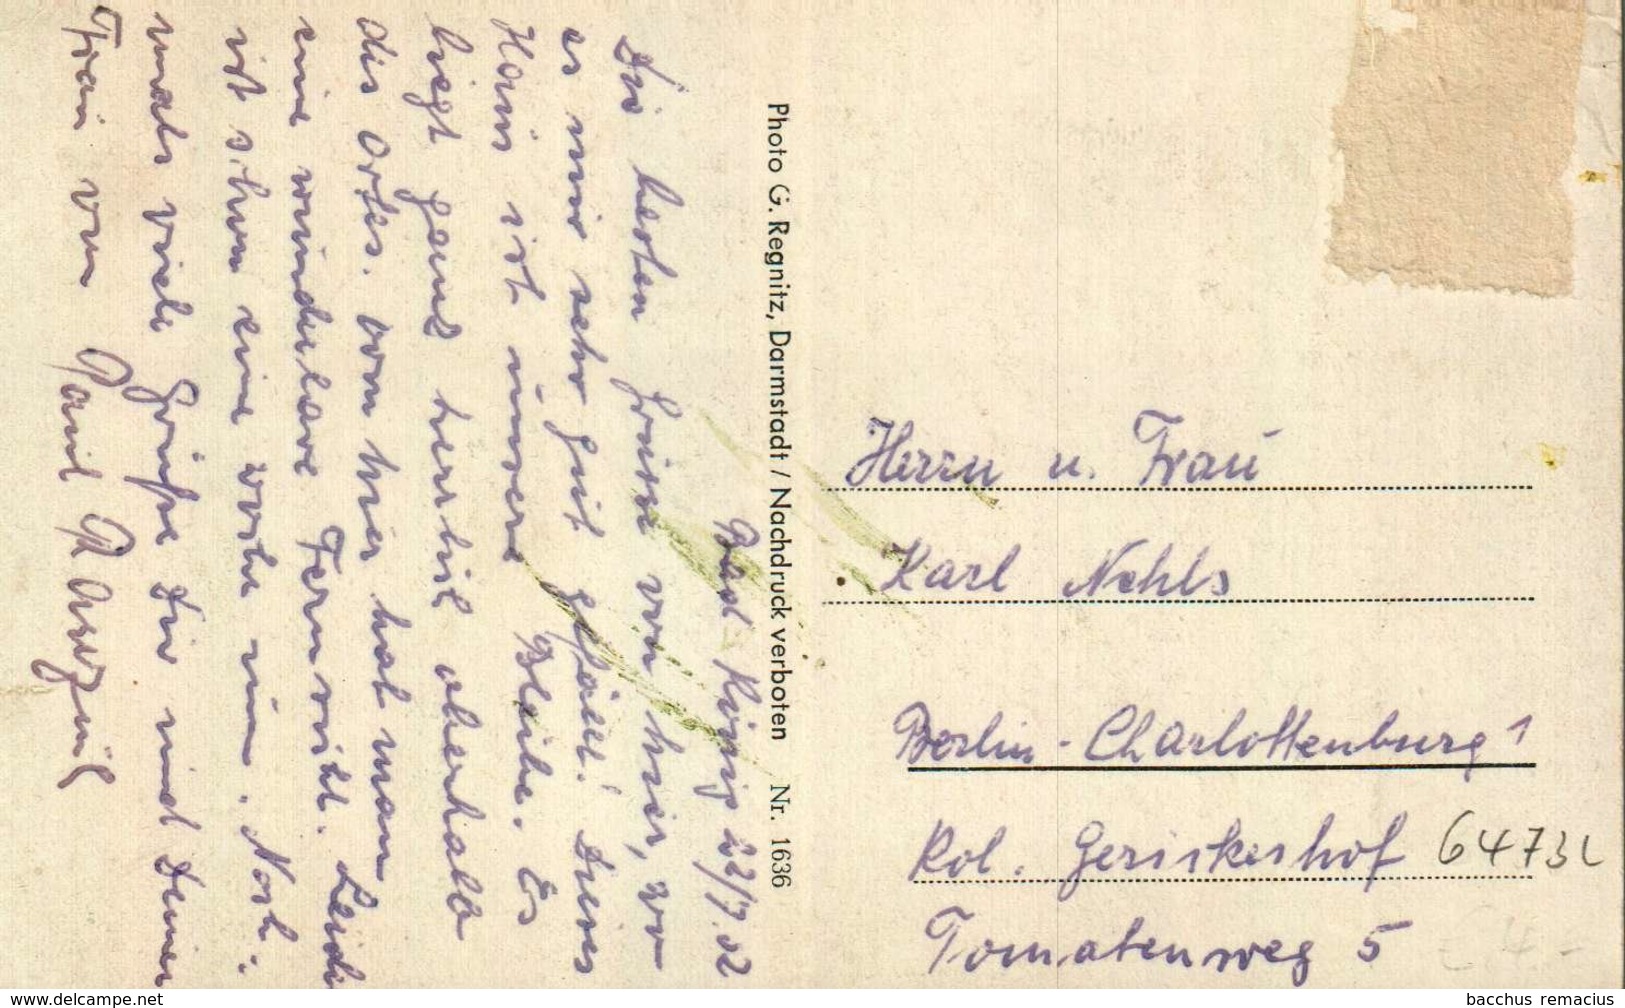 Bad König 22/7.52
Die besten Grüße von hier, wo
es mir sehr gut gefällt! Dieses
Haus ist unsere Bleibe. Es
liegt ganz herrlich oberhalb
des Ortes. Von hier hat man
eine wunderbare Fernsicht. Leider
ist schon eine Woche um. Noch-
mals viele Grüße Dir und Deiner
Frau von Paul
Photo G. Regnitz, Darmstadt / Nachdruck verboten Nr. 1636
Herrn u. Frau
Karl Nehls
Berlin-Charlottenburg 1
Kol. Gerickeshof
Tomatenweg 5
bacchus remacius